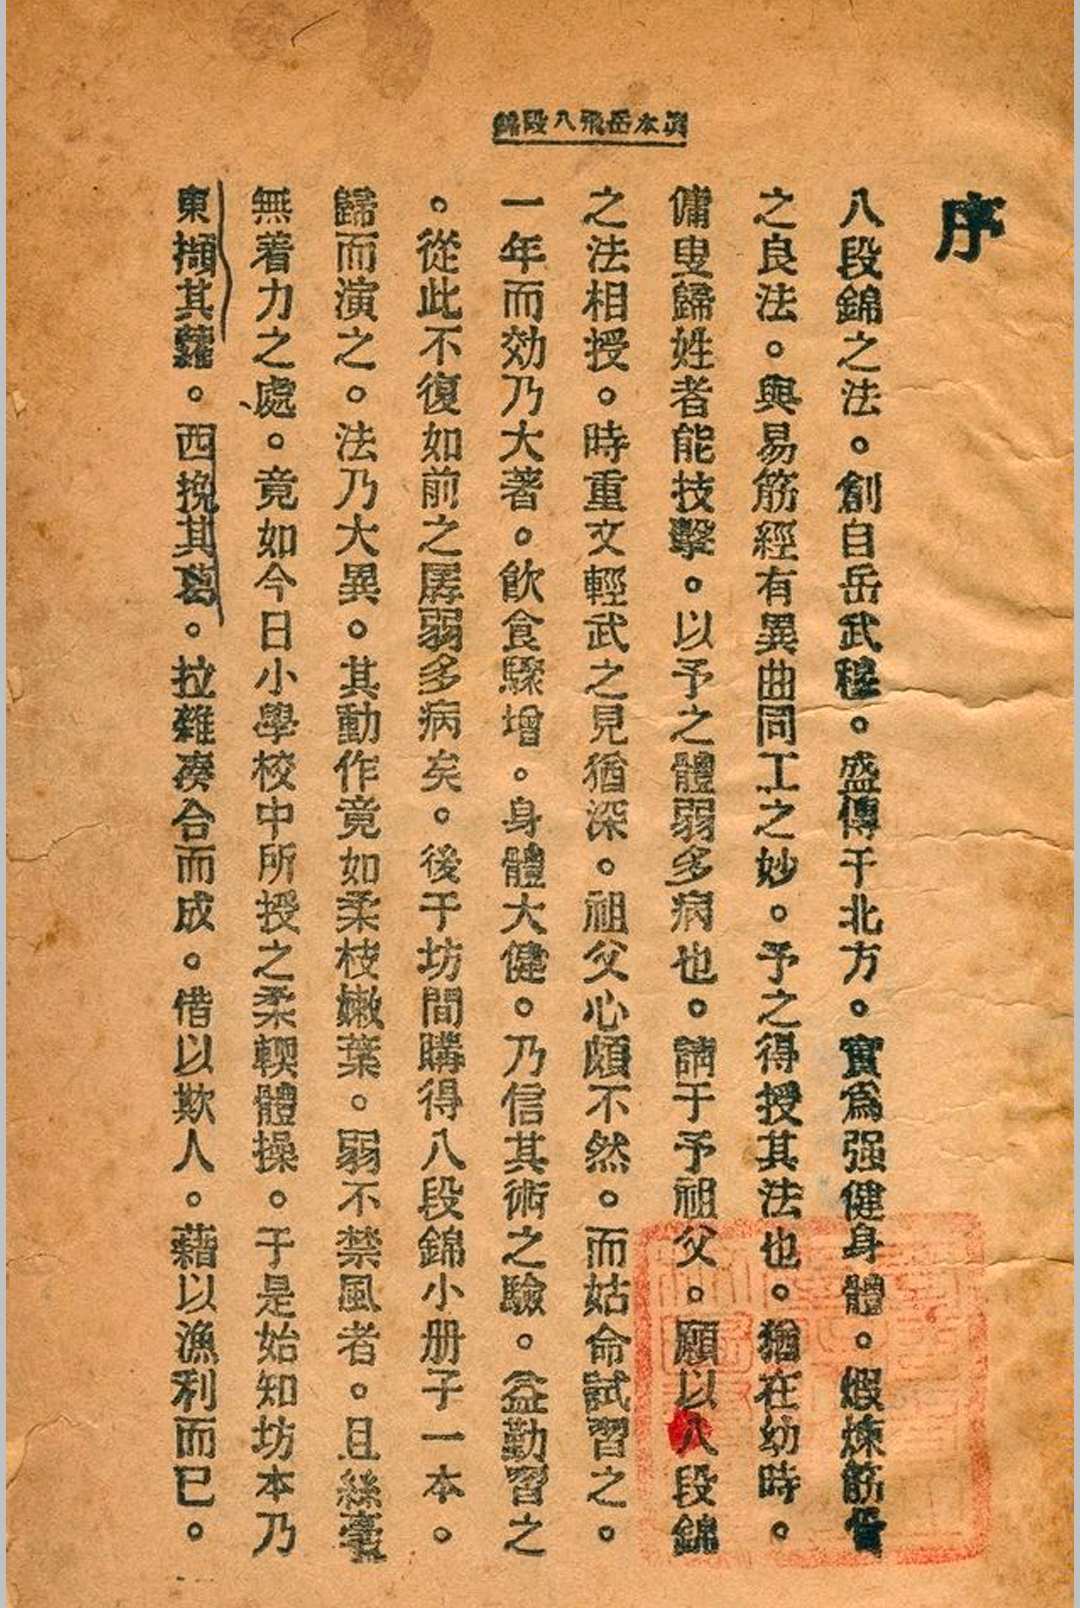 眞本岳飛八段錦
序
八段錦之法。創自岳武穆。盛傳于北方。實爲强健身體。煅煉筋骨
之良法。與易筋經有異曲同工之妙。予之得授其法也。猶在幼時。
傭叟歸姓者能技擊。以予之體弱多病也。請于予祖父。願以八段錦
之法相授。時重文輕武之見猶深。祖父心頗不然。而姑命試習之。
一年而効乃大著。飲食驟增。身體大健。乃信其術之驗。益勤習之
。從此不復如前之孱弱多病矣。後于坊間購得八段錦小册子一本。
歸而演之。法乃大異。其動作竟如柔枝嫩葉。弱不禁風者。且絲毫
無着力之處。竟如今日小學校中所授之柔輭體操。于是始知坊本乃
東擷其蘿。西挽其葛。拉雜凑合而成。借以欺人。藉以漁利而已。